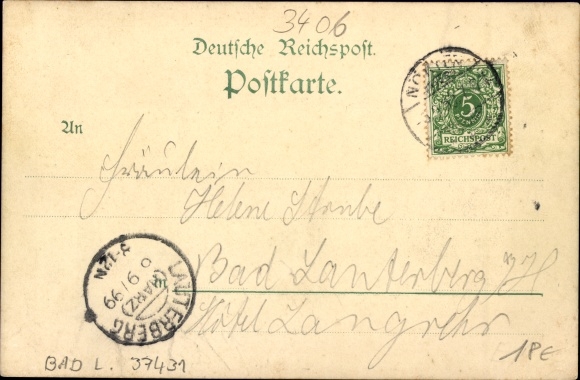 3406
Deutsche Reichspost.
Postkarte.
5
PFENNIG
REICHSPOST
An
Fräulein
Helene Staube
Bad Lauterberg a/H
in
Hôtel Langrehr
LAUTERBERG
(HARZ)
6 9/99
9-12N
BAD L. 37431
18€